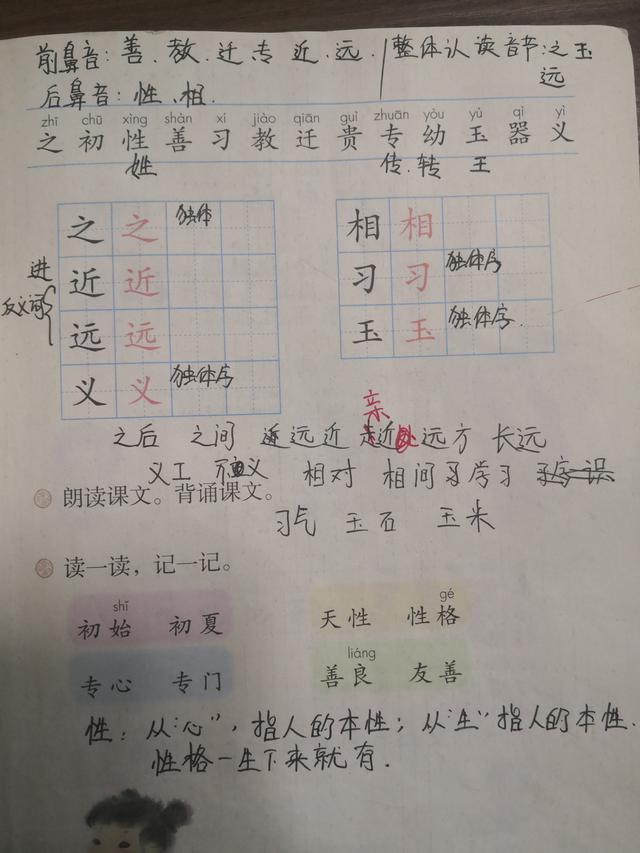 前鼻音：善、教、迁、专、近、远.
整体认读音节：之玉
远
后鼻音：性、相.
zhī chū xìng shàn xí jiào qiān guì zhuān yòu yù qì yì
之 初 性 善 习 教 迁 贵 专 幼 玉 器 义
姓 传.转 王
之 之 独体
近 近
远 远
义 义 独体字
进
反义词
相 相
习 习 独体字
玉 玉 独体字.
亲
之后 之间 远近 近 远方 长远
义工 义 相对 相间 学习
朗读课文。背诵课文。
习气 玉石 玉米
读一读，记一记。
shǐ
初始 初夏
gé
天性 性格
专心 专门
liáng
善良 友善
性：从“心”，指人的本性；从“生”指人的本性.
性格一生下来就有.